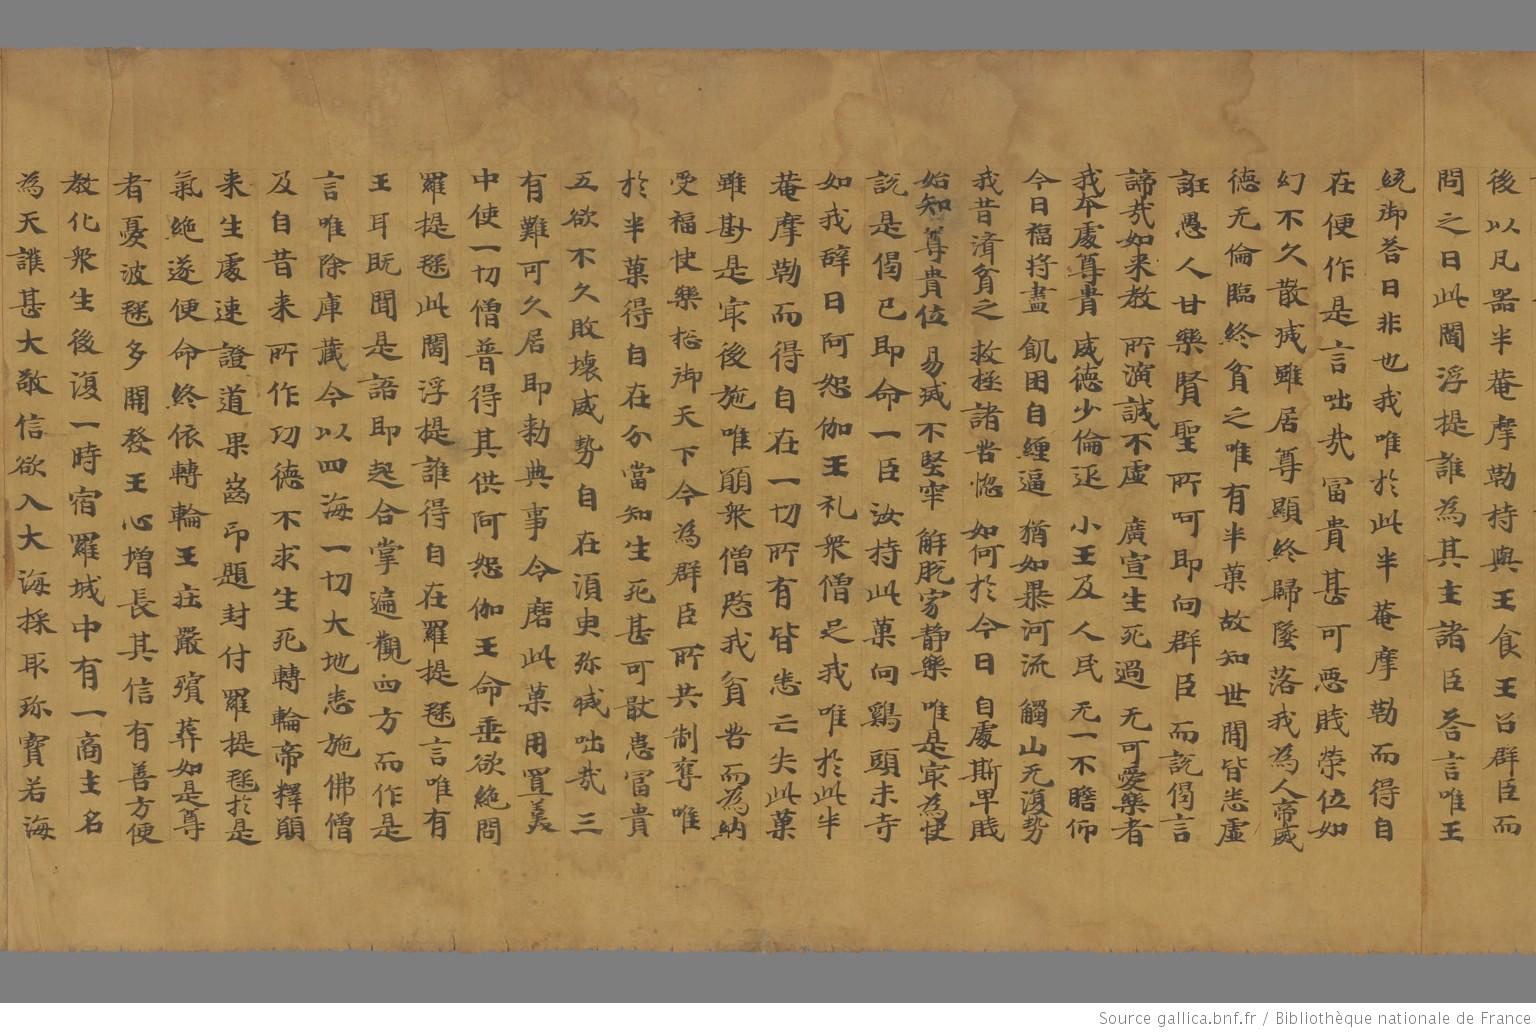 後以凡器半菴摩勒持與王食王召群臣而
問之曰此閻浮提誰為其主諸臣荅言唯王
綂御荅曰非也我唯於此半菴摩勒而得自
在便作是言咄㢤冨貴甚可惡賎榮位如
幻不久散滅雖居尊顯終歸墜落我為人帝威
德无倫臨終貧之唯有半菓故知世間皆悉虛
誑愚人甘樂賢聖所呵即向群臣而說偈言
諦㢤如来教 所演誠不虛 廣宣生死過 无可愛樂者
我本處尊貴 威德少倫迊 小王及人民 无一不瞻仰
今日福将盡 飢困自纏逼 猶如㬥河流 觸山无復勢
我昔濟貧之 救拯諸苦惚 如何於今日 自處斯卑賎
始知尊貴位 易滅不堅牢 解脫家静樂 唯是㝡為快
說是偈已即命一臣汝持此菓向鷄頭末寺
如我辝曰阿怨伽王礼衆僧足我唯於此半
菴摩勒而得自在一切所有皆悉亡失此菓
雖尠是㝡後施唯願衆僧愍我貧苦而為納
受福使樂惣御天下今為群臣所共制奪唯
於半菓得自在分當知生死甚可猒患冨貴
五欲不久敗壞威勢自在湏臾弥滅咄㢤三
有難可久居即勑典事令磨此菓用置羹
中使一切僧普得其供阿怨伽王命垂欲絶問
羅提毱此閻浮提誰得自在羅提毱言唯有
王耳既聞是語即起合掌遍觀四方而作是
言唯除庫藏今以四海一切大地悉施佛僧
及自昔来所作㓛德不求生死轉輪帝釋願
来生處速證道果齒印題封付羅提毱於是
氣絶遂便命終依轉輪王庄嚴殯葬如是尊
者憂波毱多開發王心增長其信有善方便
教化衆生後復一時宿羅城中有一商主名
為天護甚大敬信欲入大海採取珎寶若海
Source gallica.bnf.fr / Bibliothèque nationale de France